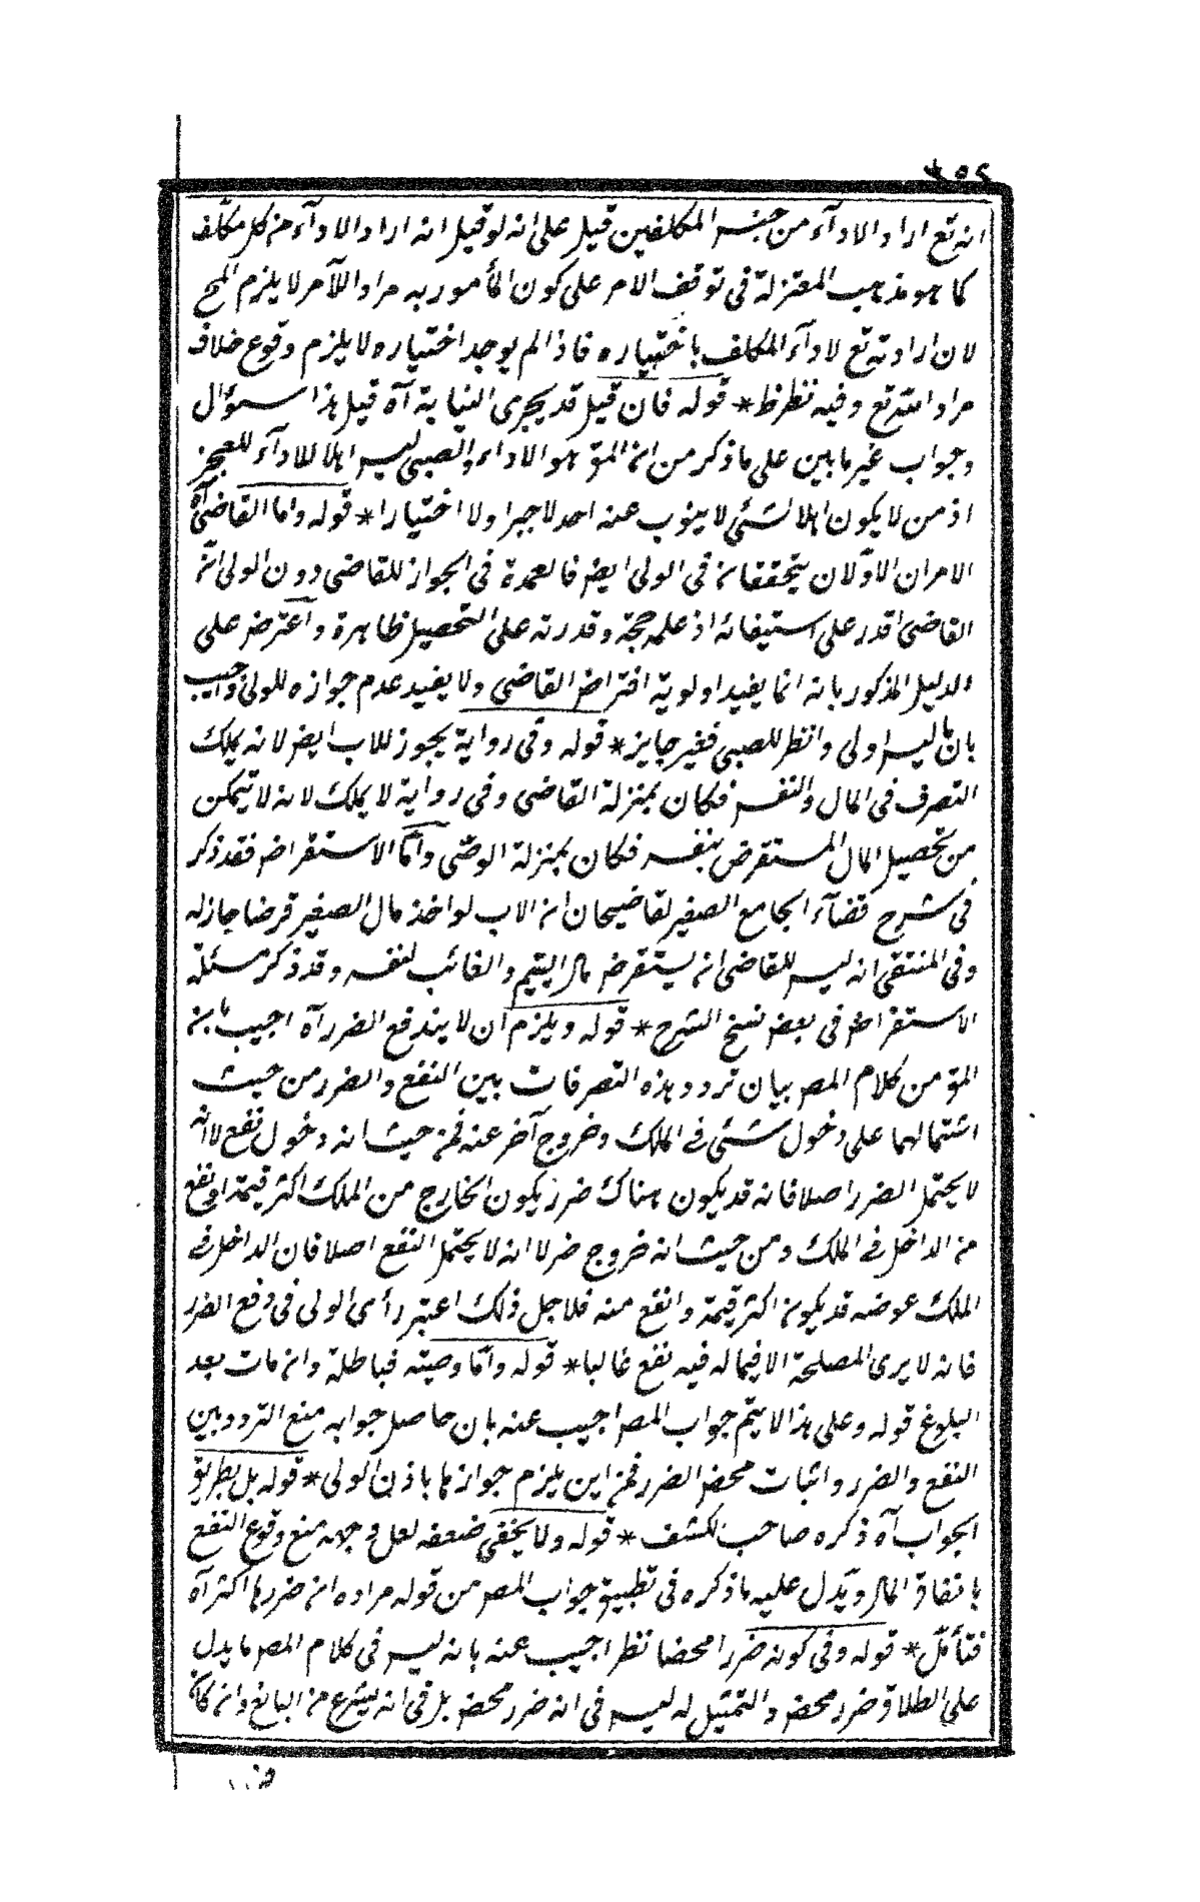 ٤٥٢
انه تع اراد الادآء من جنس المكلفين قيل على انه لو قيل انه اراد الادآء من كل مكلف
كما هو مذهب المعتزلة فى توقف الامر على كون المأمور به مراد اللآمر لا يلزم المح
لان ارادته تع لادآء المكلف باختياره فاذا لم يوجد اختياره لا يلزم وقوع خلاف
مراد الله تع وفيه نظر ظ * قوله فان قيل قد يجرى النيابة آه قيل هذا سئوال
وجواب غير مابين على ما ذكر من ان المق هو الاداء والصبى ليس اهلا للادآء للعجز
اذ من لا يكون اهلا لشئ لا ينوب عنه احد لا جبرا ولا اختيارا * قوله واما القاضى آه
الامران الاولان يتحققان فى الولى ايض فالعمدة فى الجواز للقاضى دون الولى ان
القاضى اقدر على استيفائه اذ علمه حجة وقدرته على التحصيل ظاهرة واعترض على
الدليل المذكور بانه انما يفيد اولوية اقتراض القاضى ولا يفيد عدم جوازه للولى واجيب
بان ما ليس اولى وانظر للصبى فغير جايز * قوله وفى رواية يجوز للاب ايض لانه يملك
التصرف فى المال والنفس فكان بمنزلة القاضى وفى رواية لا يملك لانه لا يتمكن
من تحصيل المال المستقرض بنفسه فكان بمنزلة الوصى واما الاستقراض فقد ذكر
فى شرح قضآء الجامع الصغير لقاضيحان ان الاب لو اخذ مال الصغير قرضا جاز له
وفى المنتقى انه ليس للقاضى ان يستقرض مال اليتيم والغائب لنفسه وقد ذكر مسئلة
الاستقراض فى بعض نسخ الشرح * قوله ويلزم ان لا يندفع الضرر آه اجيب بان
المق من كلام المص بيان تردد هذه التصرفات بين النفع والضرر من حيث
اشتمالهما على دخول شئ فى الملك وخروج آخر عنه فمن حيث انه دخول نفع لا انه
لا يحتمل الضرر اصلا فانه قد يكون هناك ضرر يكون الخارج من الملك اكثر قيمة او نفع
من الداخل فى الملك ومن حيث انه خروج ضر لا انه لا يحتمل النفع اصلا فان الداخل فى
الملك عوضه قد يكون اكثر قيمة وانفع منه فلاجل ذلك اعتبر رأى الولى فى دفع الضرر
فانه لا يرى المصلحة الا فيما له فيه نفع غالبا * قوله واما وصيته فباطلة وان مات بعد
البلوغ قوله وعلى هذا لا يتم جواب المص اجيب عنه بان حاصل جوابه منع التردد بين
النفع والضرر واثبات محض الضرر فمن اين يلزم جوازها باذن الولى * قوله بل بطريق
الجواب آه ذكره صاحب الكشف * قوله ولا يخفى ضعفه لعل وجهه منع وقوع النفع
باتفاق المال ويدل عليه ما ذكره فى تطبيق جواب المص من قوله مراده ان ضررها اكثر آه
فتأمل * قوله وفى كونه ضررا محضا نظر اجيب عنه بانه ليس فى كلام المص ما يدل
على الطلاق ضرر محض والتمثيل له ليس فى انه ضرر محض بل فى انه ليشرع من البالغ وان كان